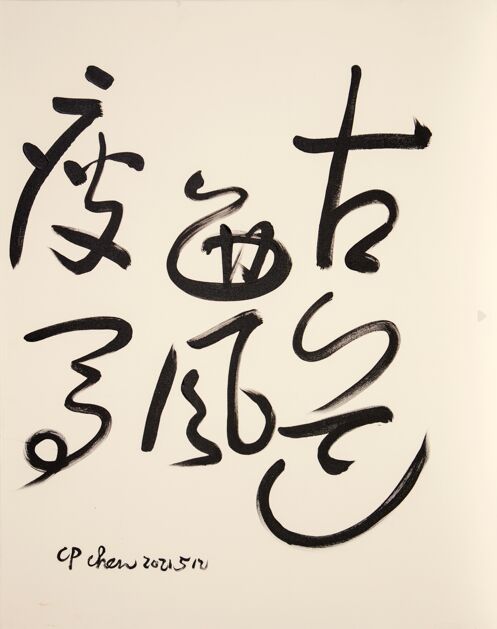 古道
西風
瘦馬
CP Chen 2021512